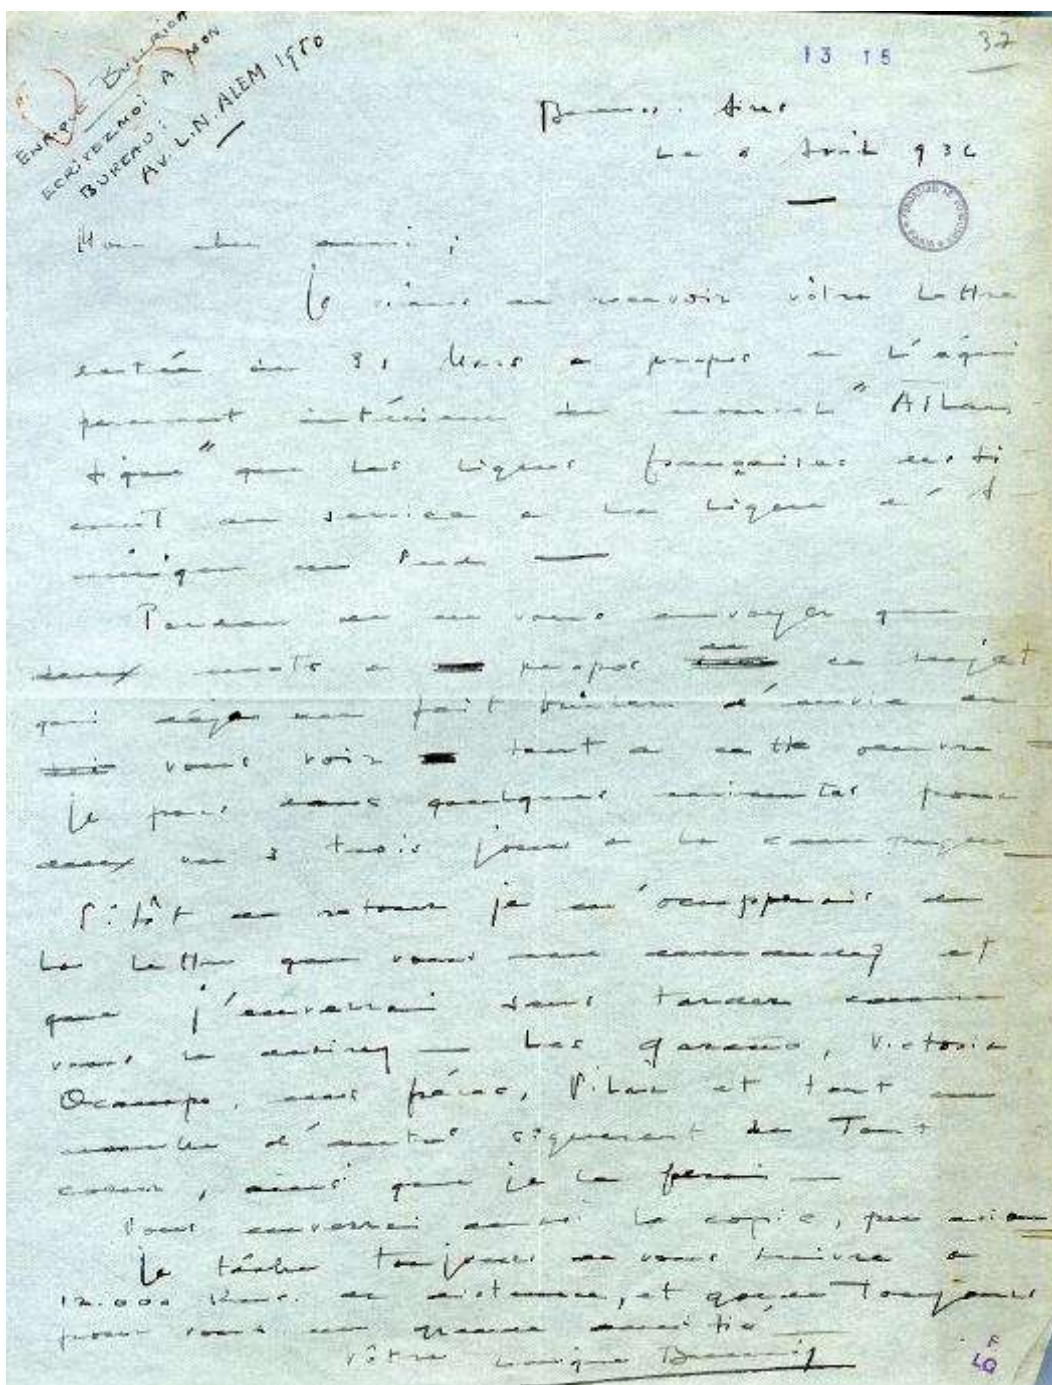 ENRIQUE BULLRICH
ECRIVEZMOI A MON
BUREAU:
AV. L.N. ALEM 1950
13 15
37
Buenos-Aires
Le 6 Avril 936
Mon cher ami;
Je viens de recevoir vôtre lettre
datée du 31 Mars a propos de l'équi
pement intérieur du nouvel "Atlan
tique" que les lignes françaises desti
ent au service de la ligne d'A
mérique du Sud —
Pardon de ne vous envoyer que
deux mots a propos de ce sujet
qui déja me fait d'envie de
vous voir tout a cette oeuvre —
Je pars dans quelques minutes pour
deux ou 3 trois jours a la campagne —
Sitôt de retour je m'ocupperais de
la lettre que vous me demandez et
que j'enverrai sans tarder comme
vous le désirez — Les , Victoria
Ocampo, mes fréres, Pilar et tout un
monde d'autres signeront de Tout
coeur, ainsi que je le ferai —
Vous enverrai aussi la copie, par avion
Je tâche toujours de vous suivre a
12.000 Kms. de distance, et garde Toujours
pour vous une grande amitié —
Vôtre Enrique Bullrich